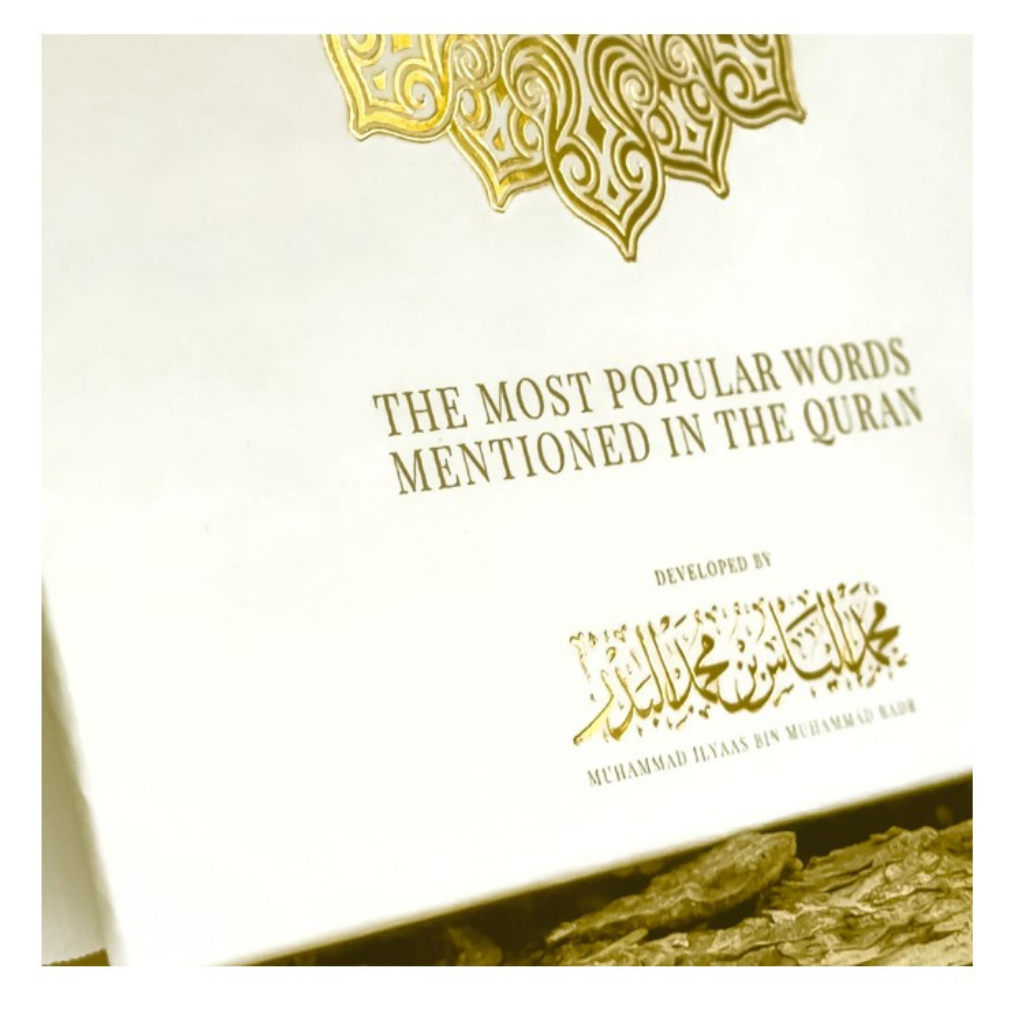 THE MOST POPULAR WORDS
MENTIONED IN THE QURAN
DEVELOPED BY
محمد الياس بن محمد البدر
MUHAMMAD ILYAAS BIN MUHAMMAD BADR